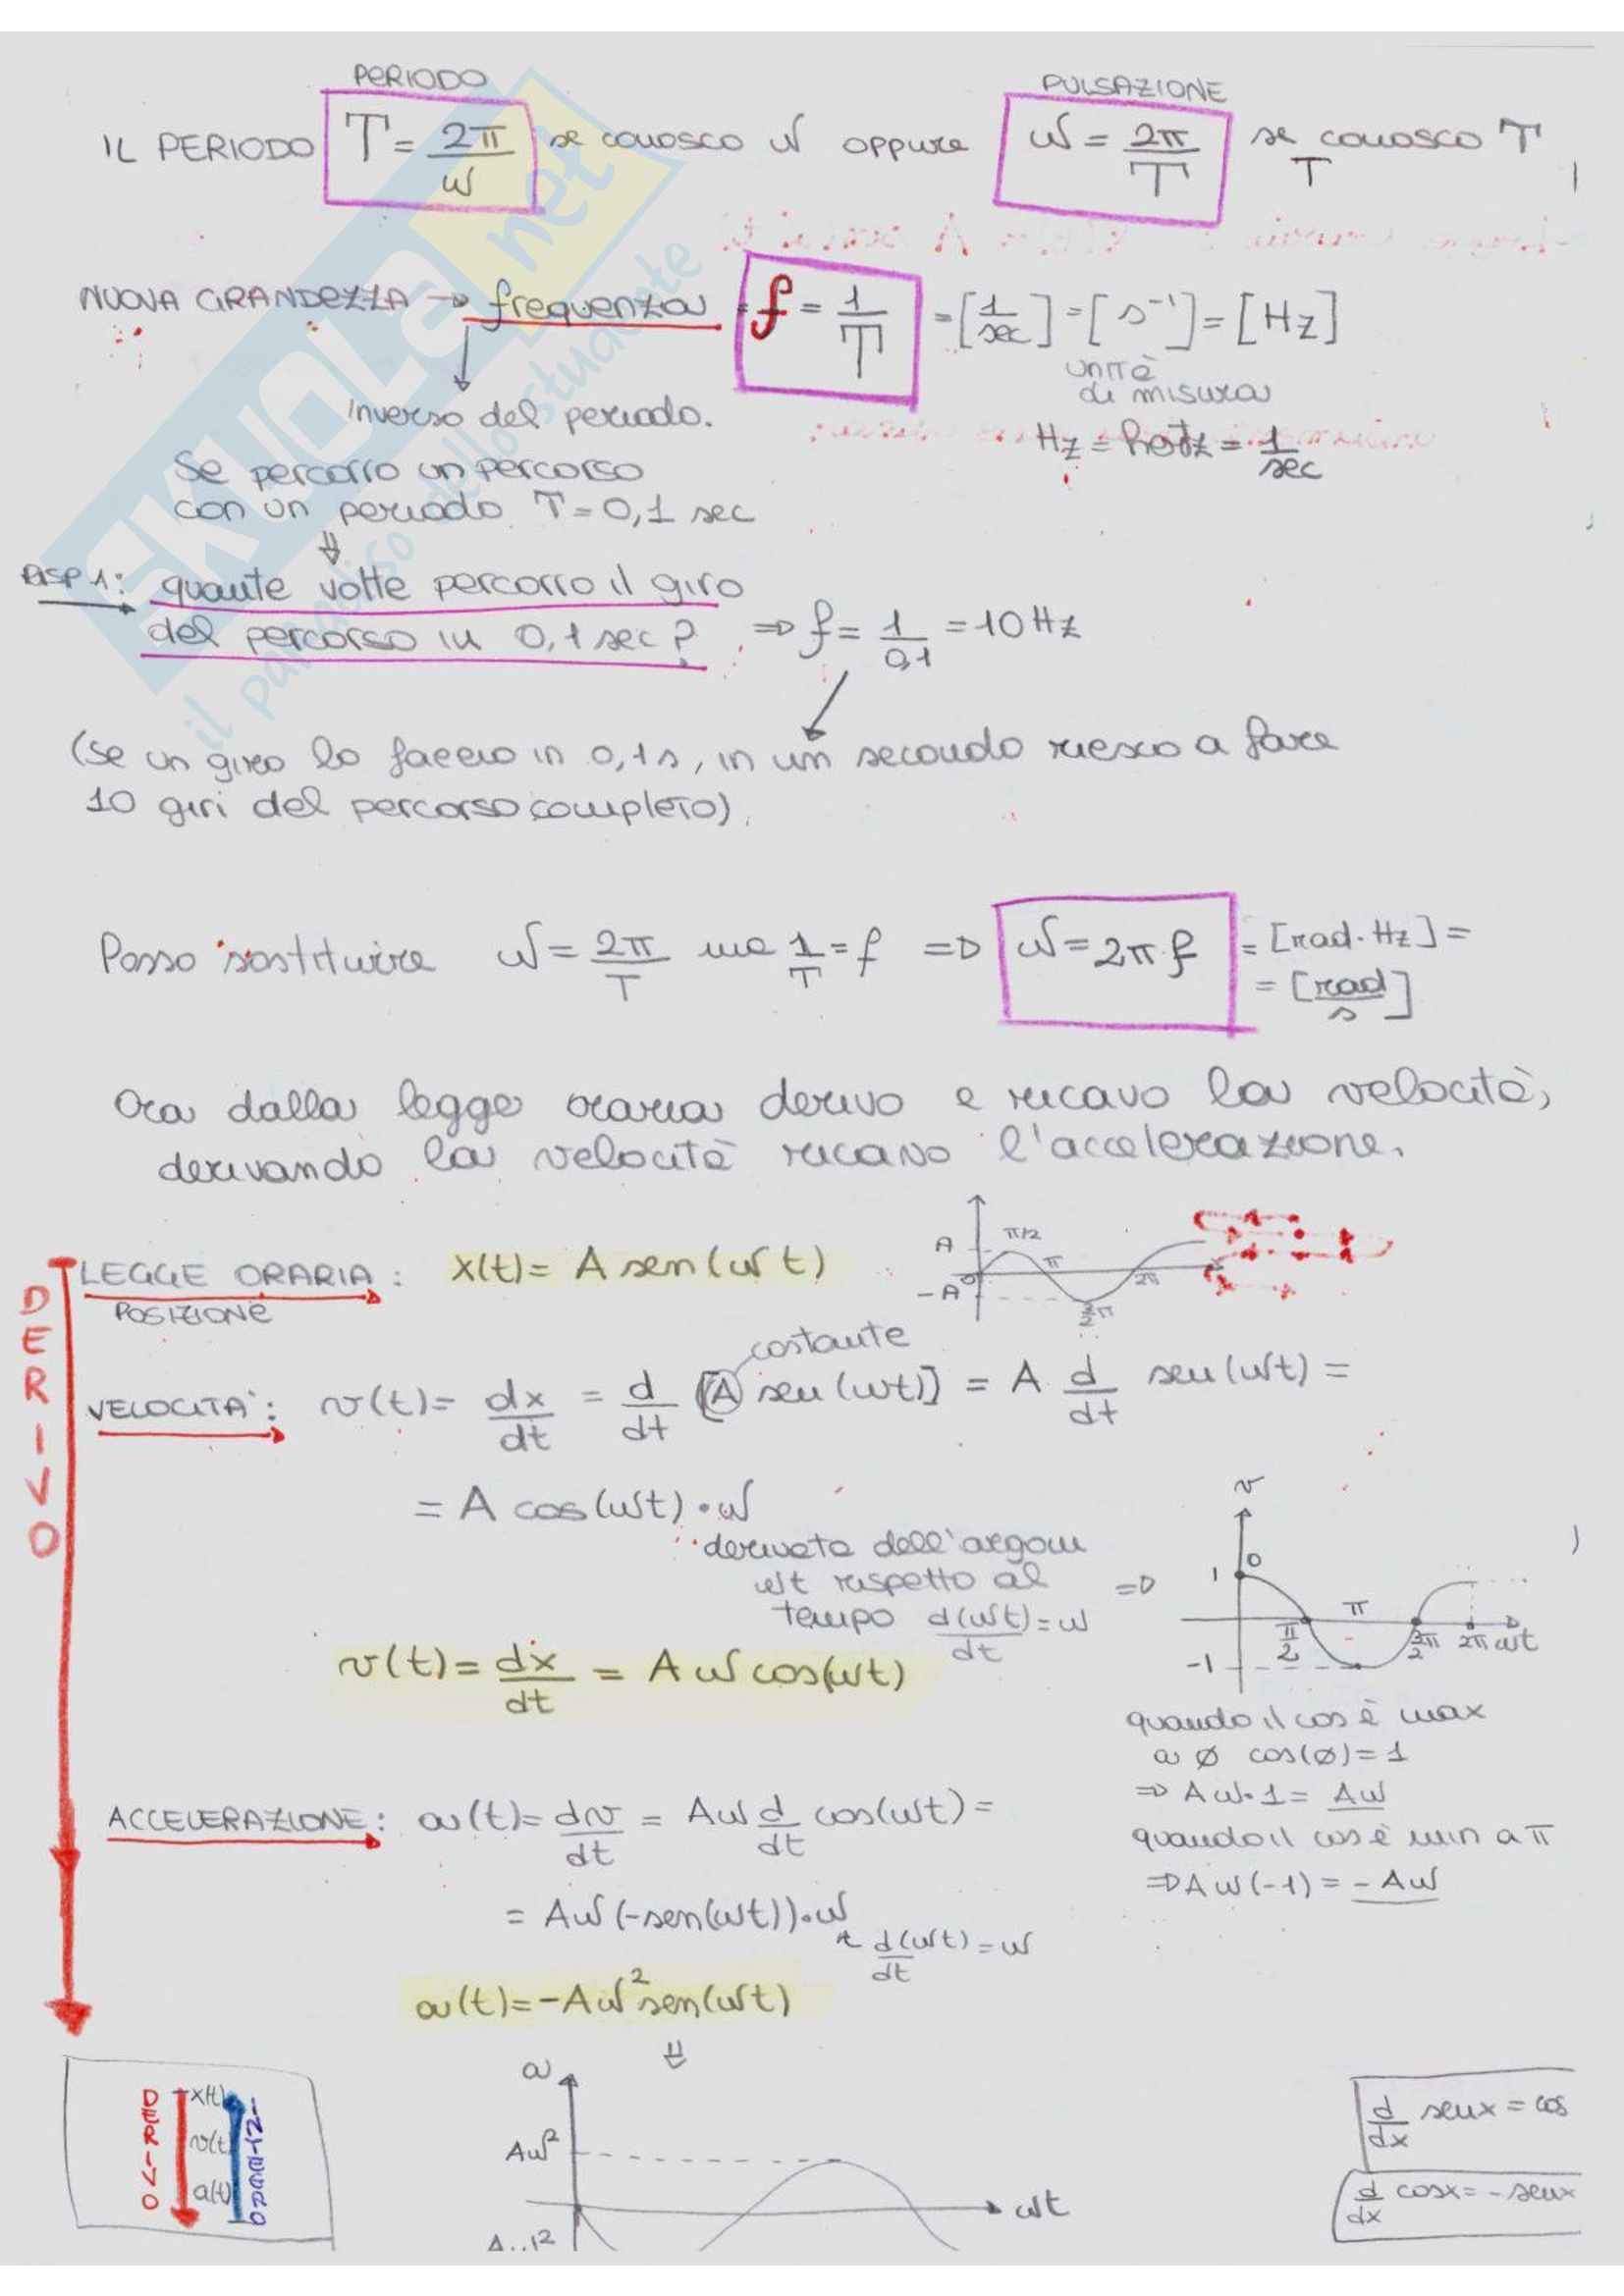 PERIODO
PULSAZIONE
IL PERIODO T = 2π/ω se conosco ω oppure ω = 2π/T se conosco T
T
NUOVA GRANDEZZA → frequenza = f = 1/T = [1/sec] = [s⁻¹] = [Hz]
unità
di misura
inverso del periodo.
Hz = hertz = 1/sec
Se percorro un percorso
con un periodo T = 0,1 sec
⇓
quante volte percorro il giro
del percorso in 0,1 sec ? ⇒ f = 1/0,1 = 10 Hz
(se un giro lo faccio in 0,1 s, in un secondo riesco a fare
10 giri del percorso completo).
Posso sostituire ω = 2π/T ma 1/T = f => ω = 2π f = [rad · Hz] =
= [rad/s]
Ora dalla legge oraria derivo e ricavo la velocità,
derivando la velocità ricavo l'accelerazione.
DERIVO
LEGGE ORARIA : x(t) = A sen(ωt)
POSIZIONE
A π/2 π 2π
0
-A 3/2 π
costante
VELOCITA' : v(t) = dx/dt = d/dt [A sen(ωt)] = A d/dt sen(ωt) =
= A cos(ωt) · ω
derivata dell'argom
ωt rispetto al =>
tempo d(ωt)/dt = ω
v
1 0
π/2 π 3/2 π 2π ωt
-1
v(t) = dx/dt = A ω cos(ωt)
quando il cos è max
a ø cos(ø) = 1
⇒ Aω·1 = Aω
quando il cos è min a π
⇒ Aω(-1) = -Aω
ACCELERAZIONE : a(t) = dv/dt = Aω d/dt cos(ωt) =
= Aω(-sen(ωt))·ω
d(ωt)/dt = ω
a(t) = -Aω² sen(ωt)
⇓
DERIVO
x(t)
v(t
a(t)
a
Aω²
ωt
d/dx senx = cos
d/dx cosx = -senx
SKUOLA.net
il paradiso dello studente